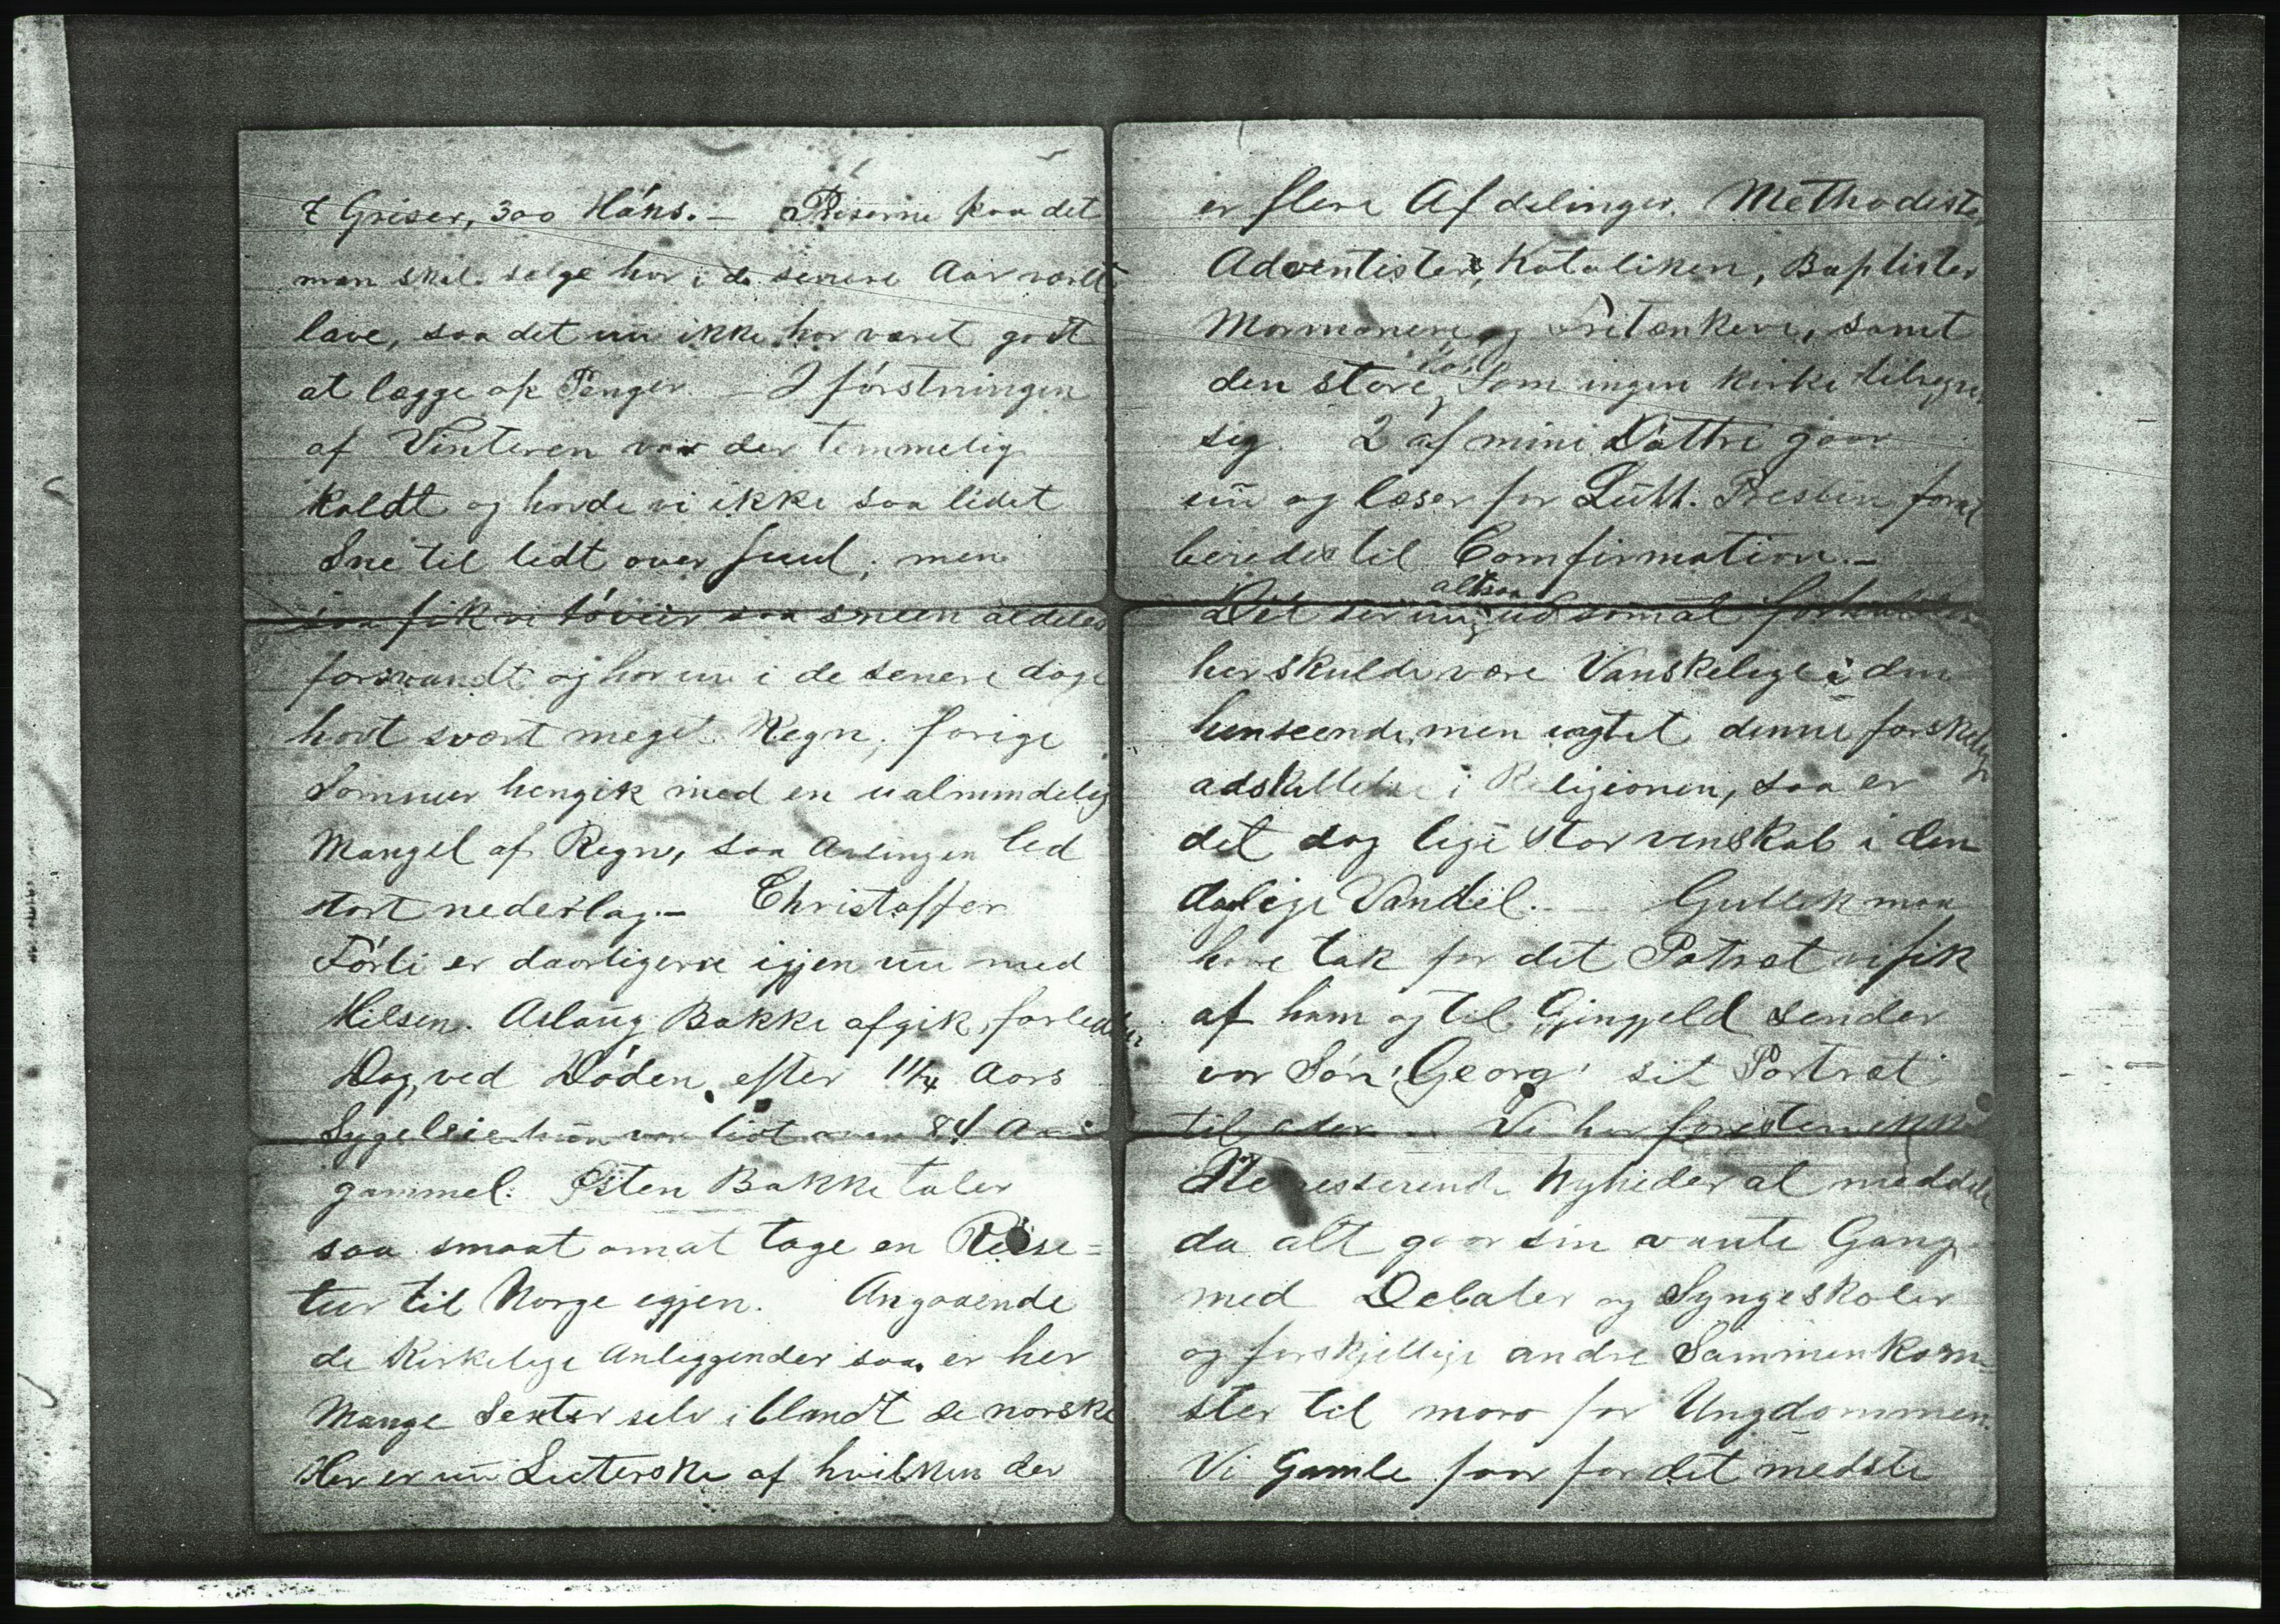 7 Griser, 300 Høns. — Priserne paa det
man skal sælge har i de senere Aar været
lave, saa det nu ikke har været godt
at lægge op Penger. — I førstningen
af Vinteren var der temmelig
koldt og havde vi ikke saa lidet
Sne til lidt over Juul, men
saa fik vi tøveir saa sneen aldeles
forsvandt og har nu i de senere dage
havt svært meget Regn, forige
Sommer hengik med en ualmindelig
Mangel af Regn, saa Avlingen led
stort nederlag. — Christoffer
Førli er daarligere igjen nu med
Hilsen. Aslaug Bakke afgik forleden
Dag, ved Døden, efter 1 1/4 Aars
Sygeleie hun var lidt over 84 Aar
gammel. Østen Bakke taler
saa smaat omat tage en Reise=
tur til Norge igjen. Angaaende
de Kirkelige Anliggender saa er her
Mange Sekter selv iblandt de norske
Her er nu Luterske af hvilken der
er flere Afdelinger. Methodister
Adventister, Katoliken, Baptister
Mormonere og Fritænkere, samt
den store, som ingen kirke tilegner
sig. 2 af mine Døttre gaar
nu og læser for Luth. Presten for at
beredes til Comfirmation. —
altsaa
Det ser nu ud somat forholdene
her skulde være Vanskelige i den
henseende, men uagtet denne forskelige
adskillelse i Religionen, saa er
det dog lige stor venskab i den
daglige Vandel. — Gullek maa
have tak for det Patræt vi fik
af ham og til Gjengjeld sender
vor Søn, Georg' sit Portræt
til eder. — Vi har foresten ikke
Interesserende Nyheder at meddele
da alt gaar sin vante Gang
med Debater og Syngeskoler
og forskjellige andre Sammenkom=
ster til moro for Ungdommen.
Vi Gamle faar for det medste